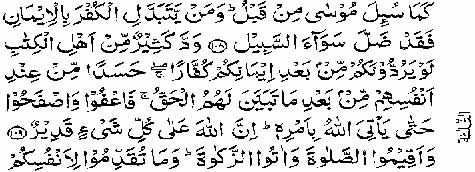 كَمَا سُئِلَ مُوْسٰى مِنْ قَبْلُ ؕ وَمَنْ يَّتَبَدَّلِ الْكُفْرَ بِالْاِيْمَانِ
فَقَدْ ضَلَّ سَوَآءَ السَّبِيْلِ ۝۱۰۸ وَدَّ كَثِيْرٌ مِّنْ اَهْلِ الْكِتٰبِ
لَوْ يَرُدُّوْنَكُمْ مِّنْۢ بَعْدِ اِيْمَانِكُمْ كُفَّارًا ۖۚ حَسَدًا مِّنْ عِنْدِ
اَنْفُسِهِمْ مِّنْۢ بَعْدِ مَا تَبَيَّنَ لَهُمُ الْحَقُّ ۚ فَاعْفُوْا وَاصْفَحُوْا
حَتّٰى يَاْتِيَ اللّٰهُ بِاَمْرِهٖ ؕ اِنَّ اللّٰهَ عَلٰى كُلِّ شَيْءٍ قَدِيْرٌ ۝۱۰۹
وَاَقِيْمُوا الصَّلٰوةَ وَاٰتُوا الزَّكٰوةَ ؕ وَمَا تُقَدِّمُوْا لِاَنْفُسِكُمْ